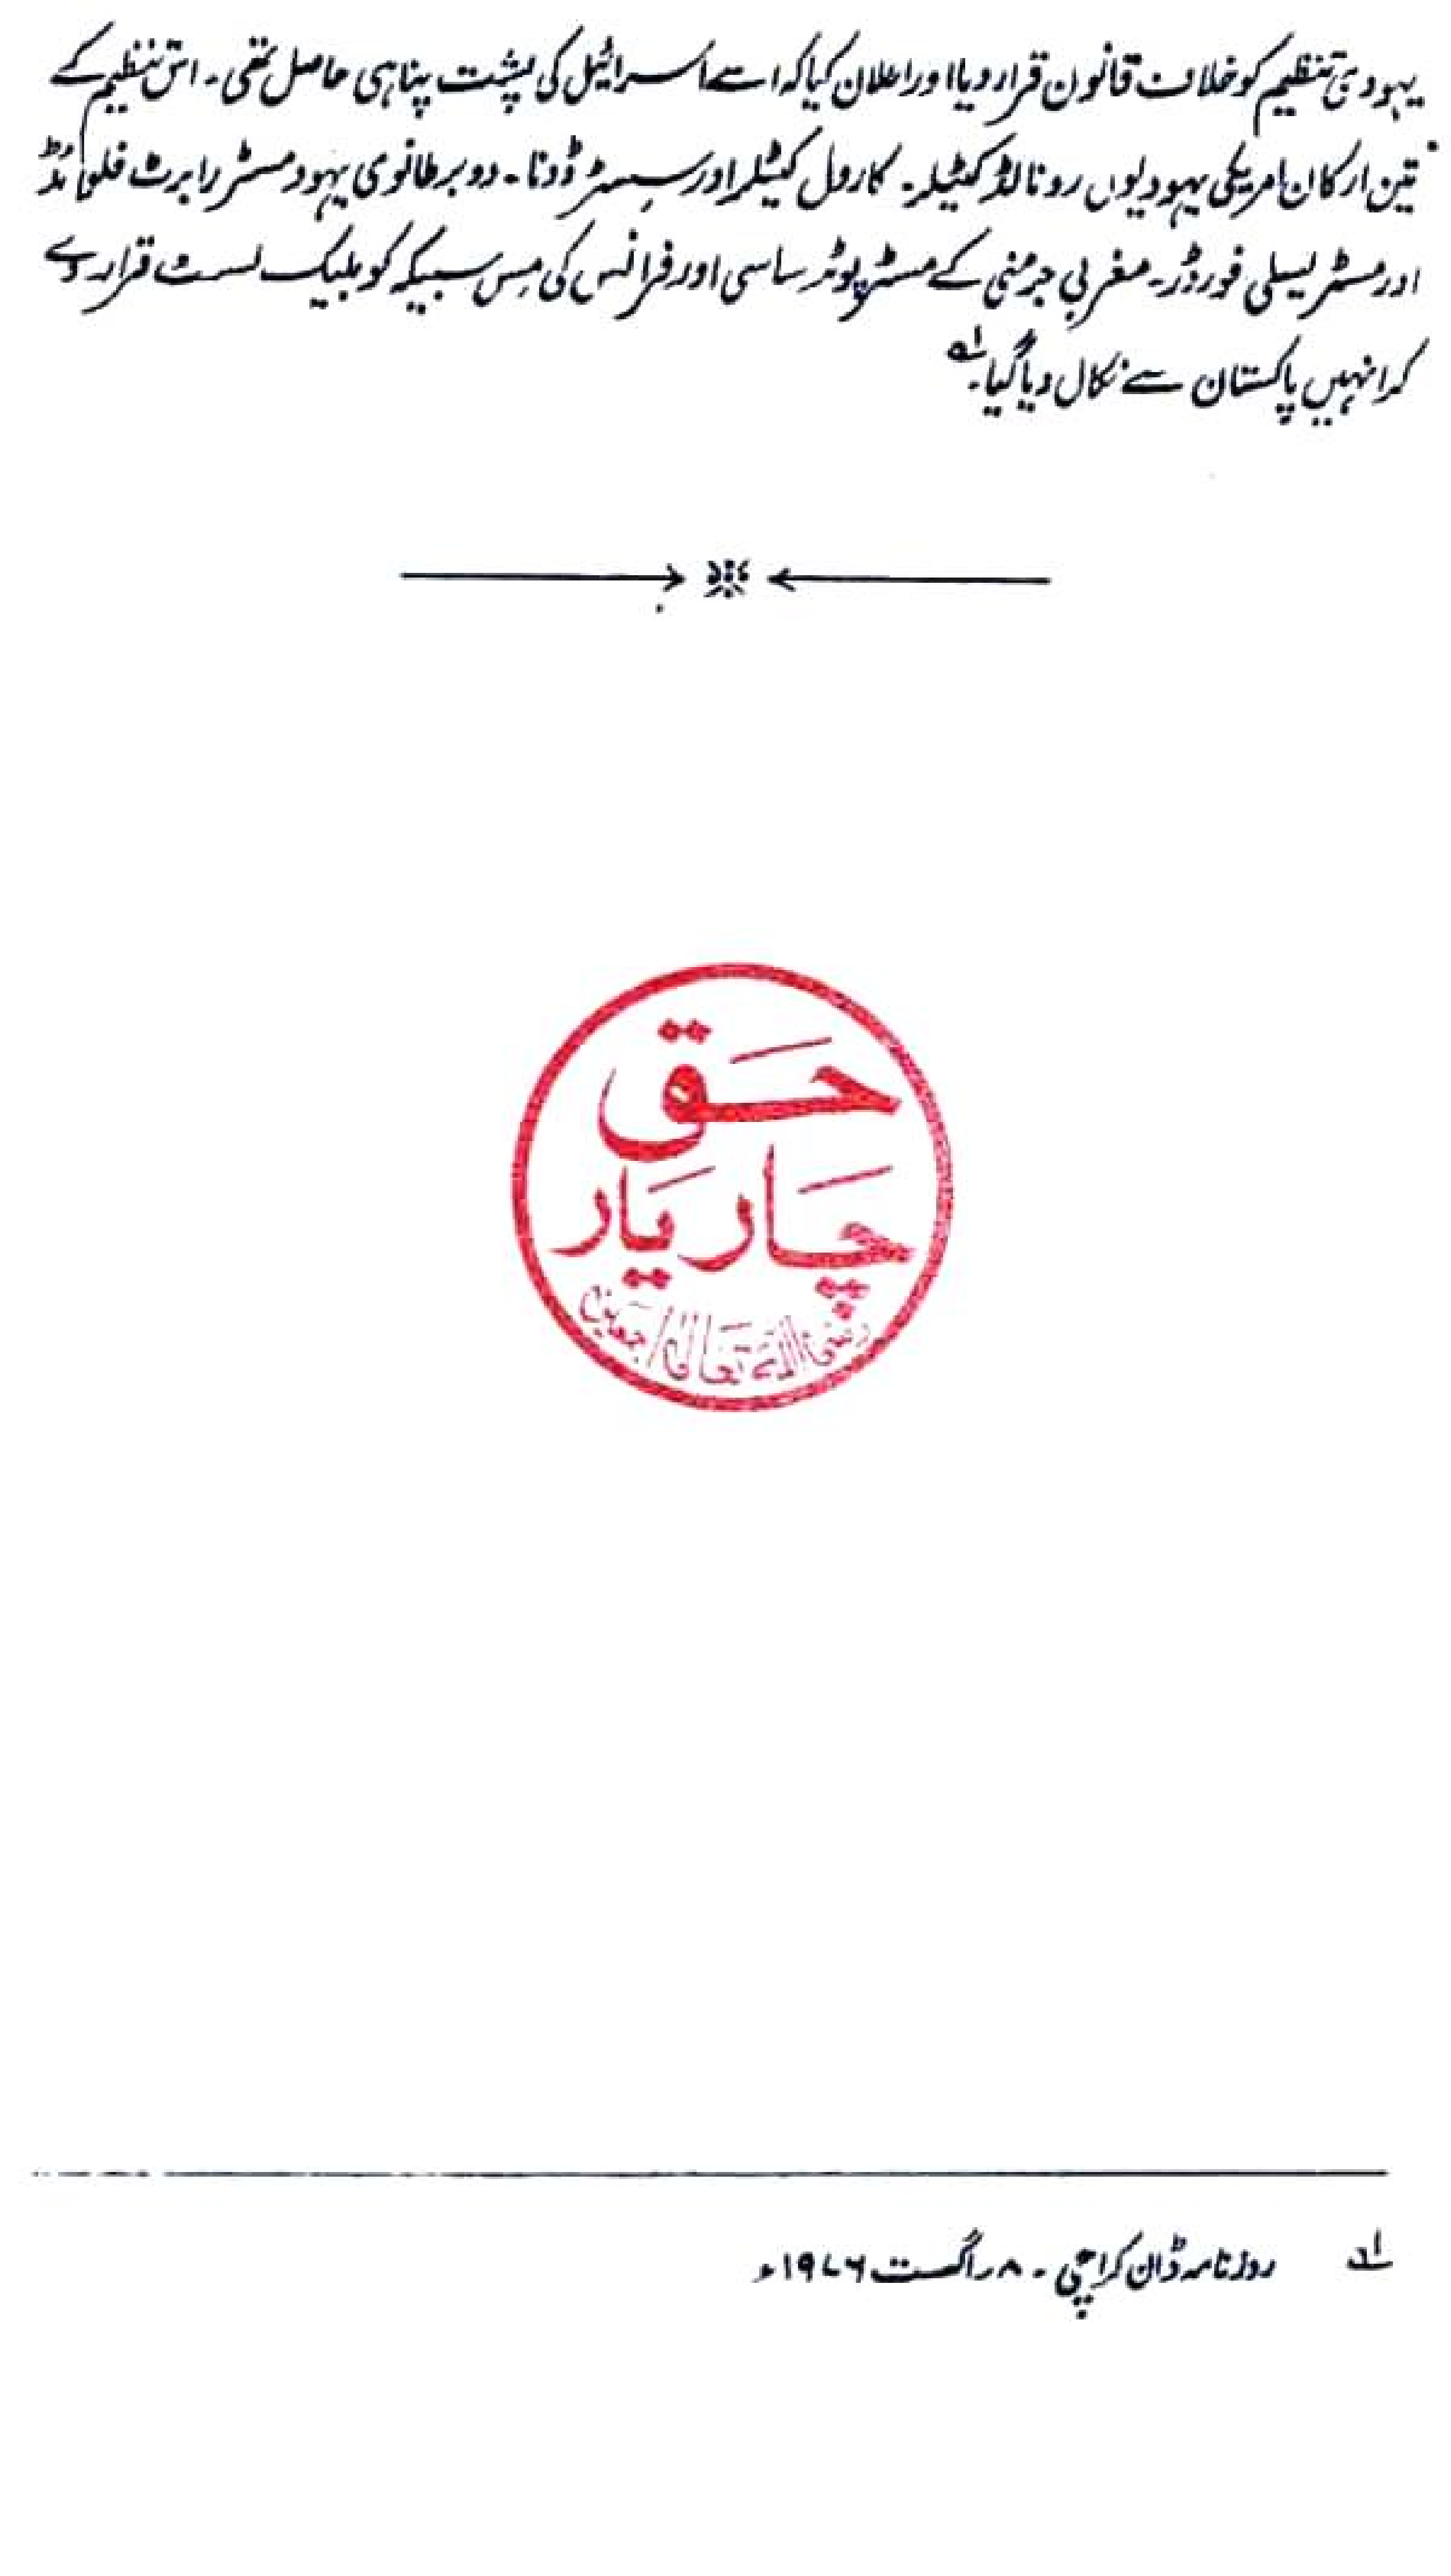 یہودی تنظیم کو خلاف قانون قرار دیا اور اعلان کیا کہ اسے اسرائیل کی پشت پناہی حاصل تھی۔ اس تنظیم کے
تین ارکان امریکی یہودیوں رونالڈ کیٹلر۔ کارول کیٹلر اور سسٹر ڈونا۔ دو برطانوی یہود مسٹر رابرٹ فلائڈ
اور مسٹر لیسلی فورڈر۔ مغربی جرمنی کے مسٹر ساسی اور فرانس کی مس سبیکہ کو بلیک لسٹ قرار دے
کر انہیں پاکستان سے نکال دیا گیا۔ ؎۱
حَق
چَار یَار
رضی اللہ تعالیٰ اجمعین
؎۱ روزنامہ ڈان کراچی۔ ۸ اگست ۱۹۷۶ء